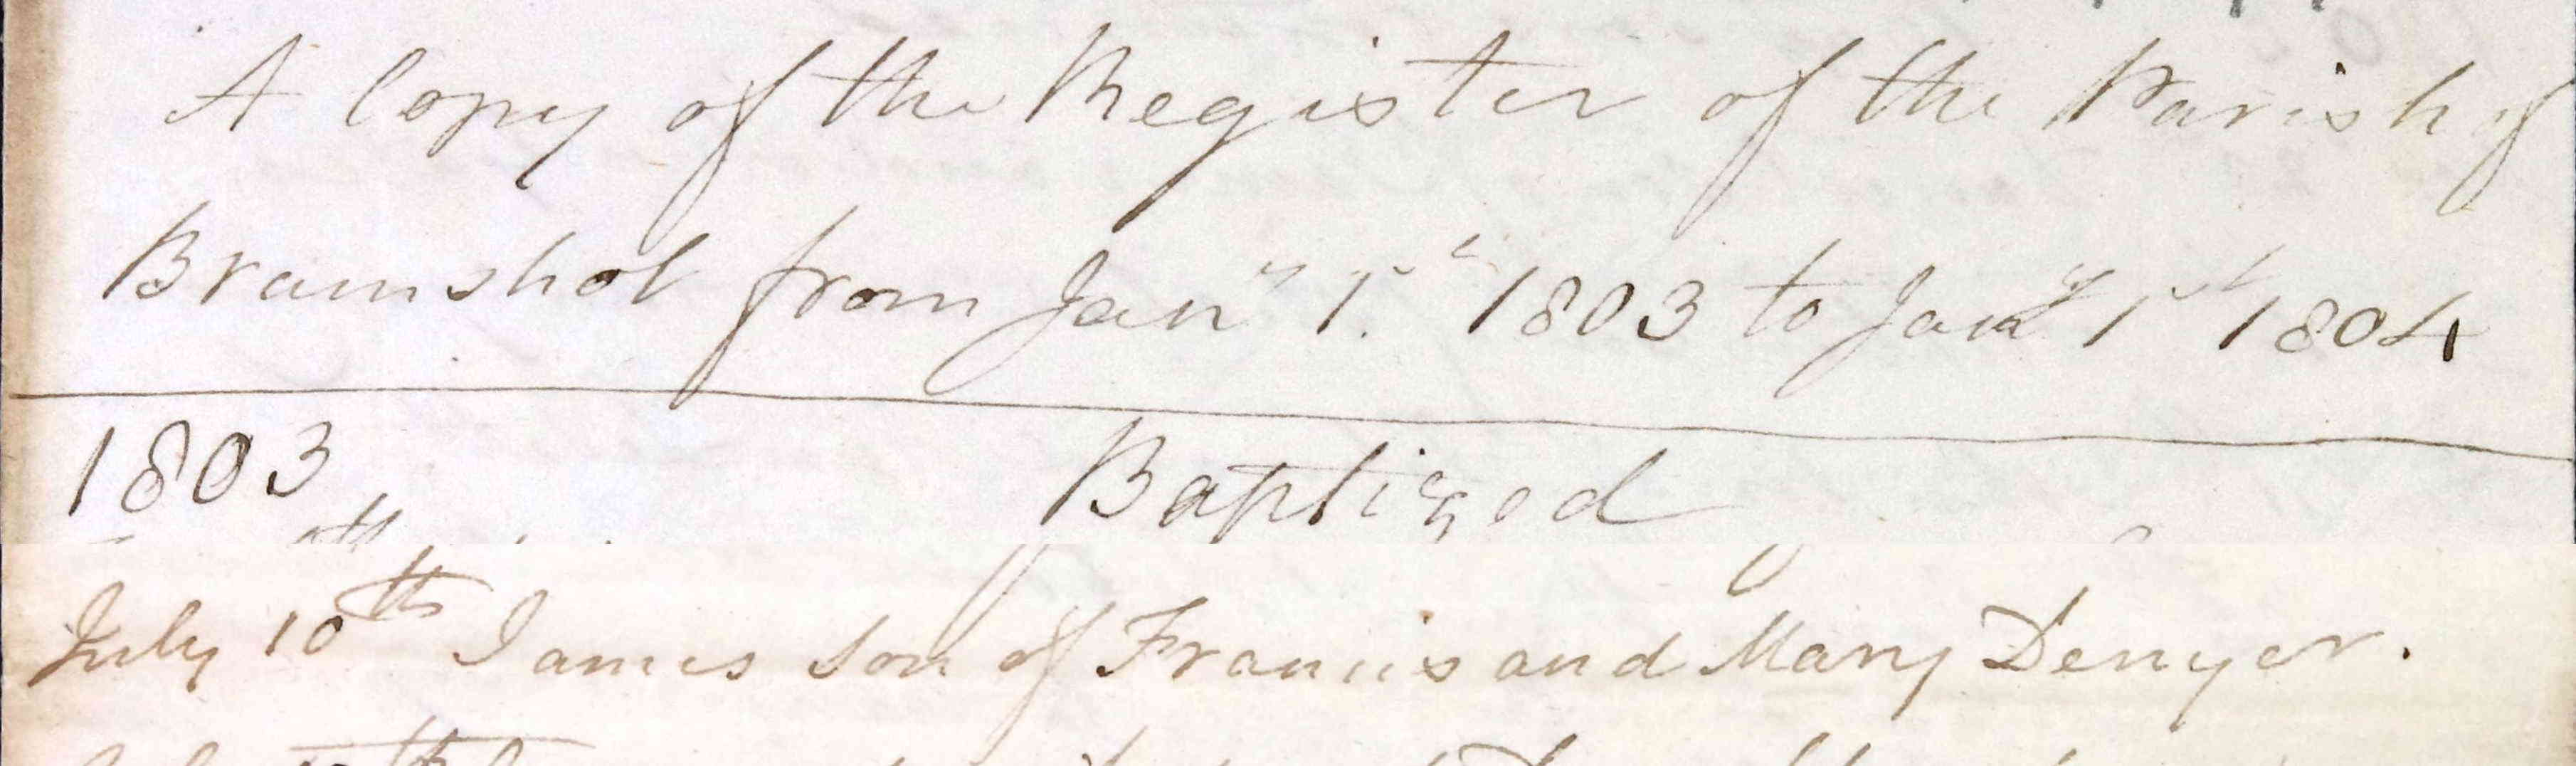 A Copy of the Register of the Parish of
Bramshot from Jany 1st 1803 to Jany 1st 1804
1803
Baptized
July 10th James son of Francis and Mary Denyer.